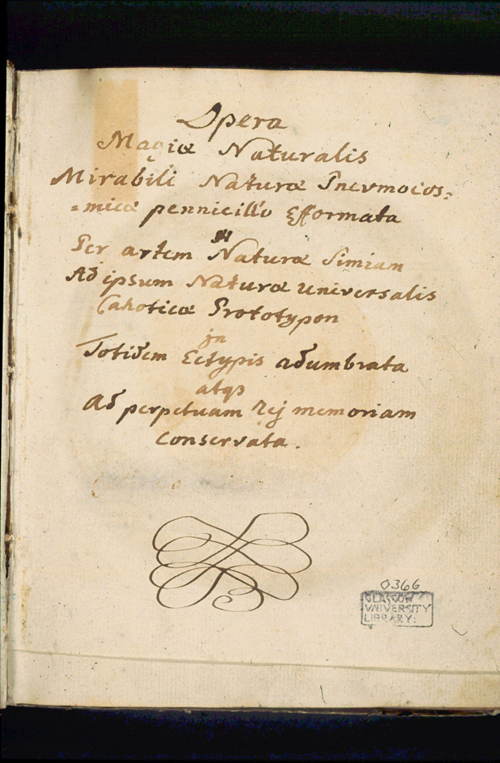 Opera
Magiæ Naturalis
Mirabili Naturæ Pnevmocos=
=micæ pennicillo Efformata
Per artem Naturæ Simiam
Ad ipsum Naturæ universalis
Cahoticæ Prototypon
jn
Totidem Ectypis adumbrata
atqs
Ad perpetuam Rej memoriam
Conservata.
0366
GLASGOW
UNIVERSITY
LIBRARY: